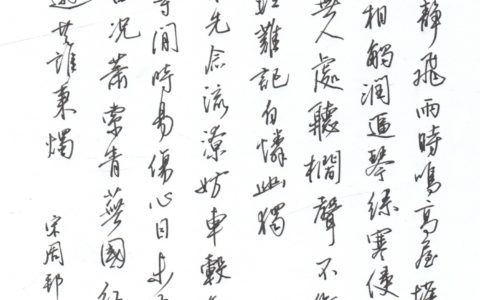 静飛雨時鳴高屋
相觸潤逼琴絲寒侵
無人處聽櫩聲不
難記自憐幽獨
先念流潦妨車轂
閒時易傷心目未
況蕭索青蕪國
遊共誰秉燭
宋周邦